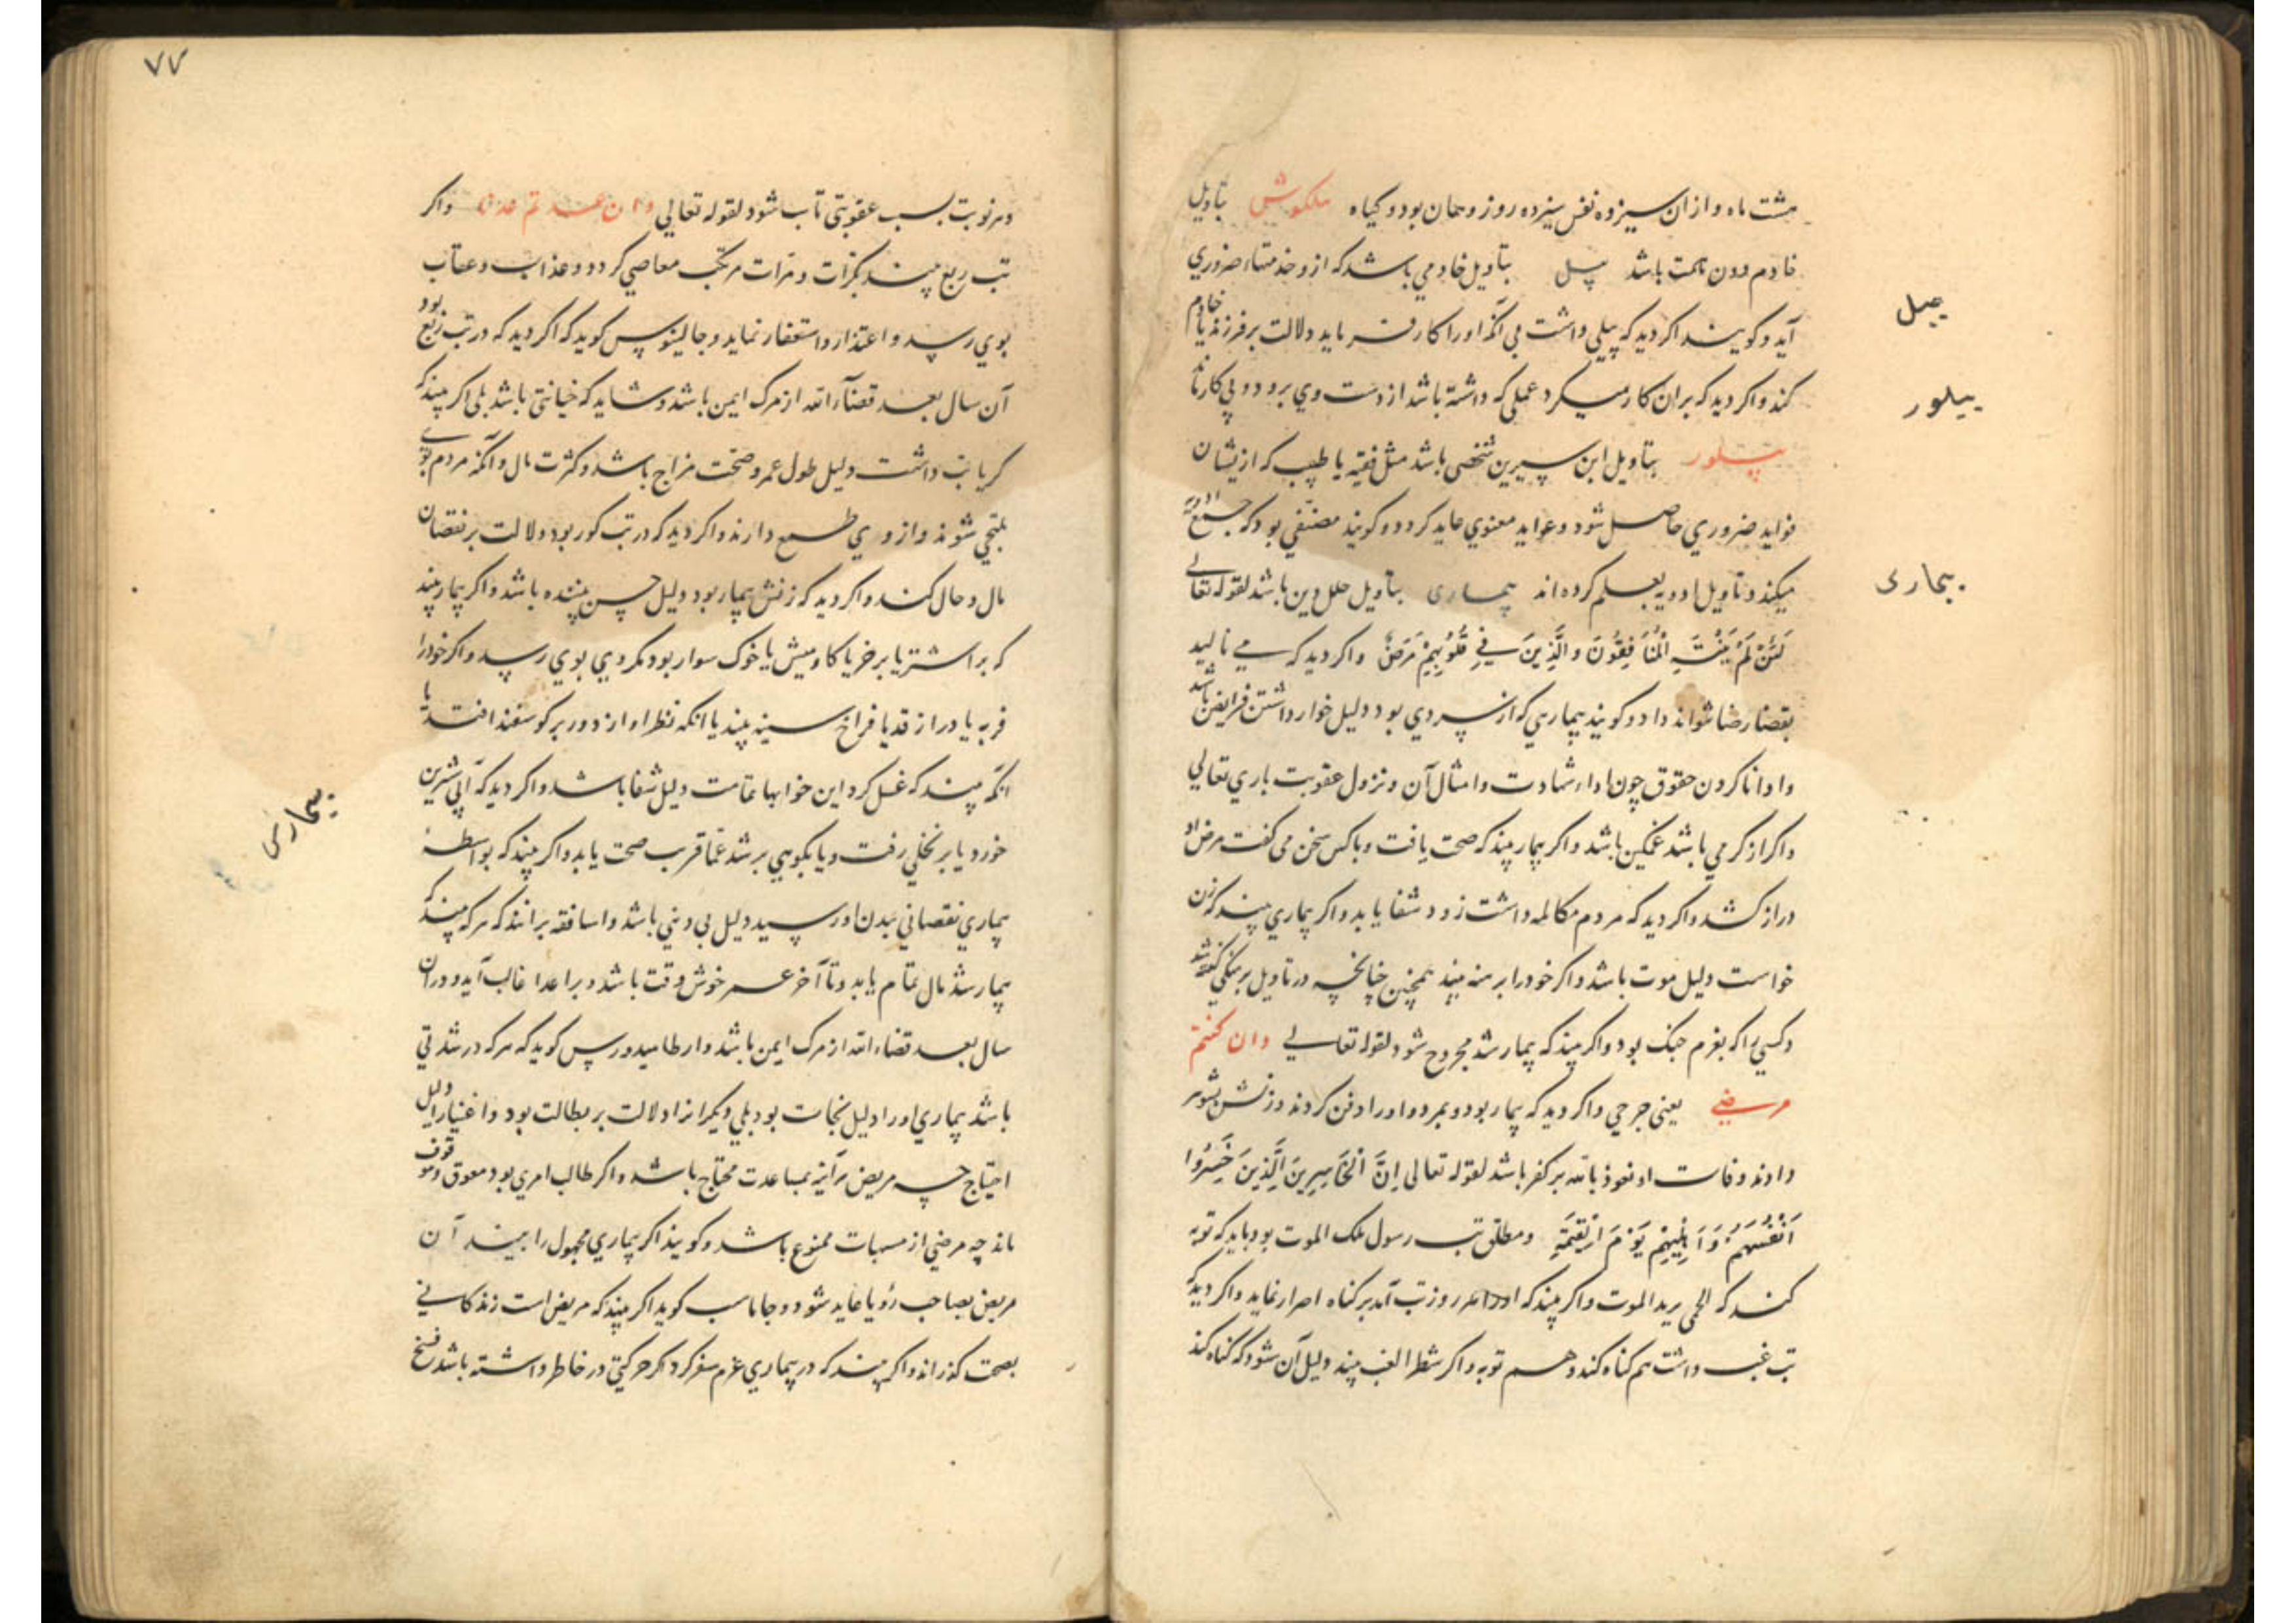 هشت ماه و از ان سیزده نفس سیزده روز و همان بود و کیاه بتاویل
خادم دون همت باشد پیل بتاویل خادمی باشد که از و خدمتهاء ضروري
آید و کویند اکر دید که پیلی داشت بی آنکه اورا کار فرماید دلالت بر فرزند یا خادم
کند و اکر دید که بران کار میکرد عملی که داشته باشد از دست وي برود و بی کار ماند
پیلور بتاویل ابن سیرین شخصی باشد مثل فقیه یا طبیب که ازیشان
فواید ضروري حاصل شود و عواید معنوي عاید کردد و کویند مصنفی بود که جمع ادویه
میکند و تاویل ادویه بعلم کرده اند بیماری بتاویل خلل دین باشد لقوله تعالی
لَئِنْ لَمْ يَنْتَهِ الْمُنَافِقُونَ وَالَّذِينَ فِي قُلُوبِهِمْ مَرَضٌ واکر دید که می نالید
بقضا رضا نتواند داد و کویند بیماریی که از سردي بود دلیل خوار داشتن فرایض باشد
و ادا نا کردن حقوق چون اداء شهادت و امثال آن و نزول عقوبت باري تعالی
و اکر از کرمی باشد غمکین باشد و اکر بیمار بیند که صحت یافت و با کس سخن می کفت مرض او
دراز کشد و اکر دید که مردم مکالمه داشت زود شفا یابد و اکر بیماري بیند که زن
خواست دلیل موت باشد و اکر خود را برهنه بیند همچنین چنانچه در تاویل برهنکی کفته شد
و کسی را که بعزم جنک بود و اکر بیند که بیمار شد مجروح شود لقوله تعالی وان کنتم
مرضی یعنی جرحی و اکر دید که بیمار بود و بمرد و اورا دفن کردند و زنش بشوهر
دادند وفات او نعوذ بالله بر کفر باشد لقوله تعالی إِنَّ الْخَاسِرِينَ الَّذِينَ خَسِرُوا
أَنْفُسَهُمْ وَأَهْلِيهِمْ يَوْمَ الْقِيَمَةِ و مطلق تب رسول ملک الموت بود باید که توبه
کند که الحمی برید الموت و اکر بیند که اورا هر روز تب آمد بر کناه اصرار نماید و اکر دید که
تب غب داشت هم کناه کند و هم توبه و اکر شطر الغب بیند دلیل آن شود که کناه کند
پیل
پیلور
بیماری
۷۷
و هر نوبت بسبب عقوبتی تایب شود لقوله تعالی وان عدتم عدنا و اکر
تب ربع بیند بکرّات و مرّات مرتکب معاصی کردد و عذاب و عقاب
بوي رسد و اعتذار و استغفار نماید و جالینوس کوید که اکر دید که در تب ربع بود
آن سال بعد قضآء الله از مرک ایمن باشد و شاید که خیانتی باشد بلی اکر بیند که
داشت دلیل طول عمر و صحّت مزاج باشد و کثرت مال و آنکه مردم بوی
ملتجی شوند و از وي طمع دارند و اکر دید که در تب کور بود دلالت بر نقصان
مال و حال کند و اکر دید که زنش بیمار بود دلیل حسن بیننده باشد و اکر بیمار بیند
که بر اشتر یا بر خر یا کاومیش یا خوک سوار بود مکروهی بوي رسد و اکر خود را
فربه یا دراز قد یا فراخ سینه بیند یا انکه نظر او از دور بر کوسفند افتد یا
آنکه بیند که غسل کرد این خوابها تمامت دلیل شفا باشد و اکر دید که آبی شیرین
خورد یا بر نخلی رفت و یا بکوهی بر شد عما قریب صحت یابد و اکر بیند که بواسطهٔ
بیماري نقصانی ببدن او رسید دلیل بی دینی باشد و اساقفه برانند که هر که بیند که
بیمار شد مال تمام یابد و تا آخر عمر خوش وقت باشد و بر اعدا غالب آید و دران
سال بعد قضاء الله از مرک ایمن باشد و ارطامیدورس کوید که هر که در شدتی
باشد بیماري اورا دلیل نجات بود بلی دیکرانرا دلالت بر بطالت بود و اغنیا را دلیل
احتیاج چه مریض هر آینه بمساعدت محتاج باشد و اکر طالب امري بود معوق و موقوف
ماند چه مرضی از مهمات ممنوع باشد و کویند اکر بیماري مجهول را بیند آن
مرض بصاحب رؤیا عاید شود و جاماسب کوید اکر بیند که مریض است زندکانی
بصحت کذراند و اکر بیند که در بیماري عزم سفر کرد اکر حرکتی در خاطر داشته باشد فسخ
بیماری